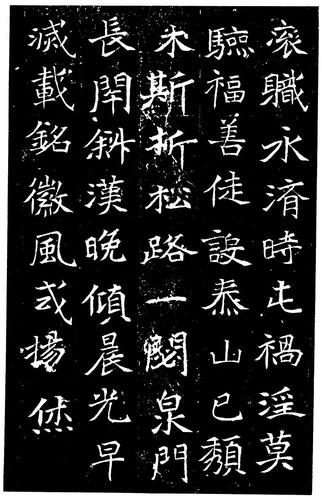 衮職永濟時屯禍淫莫
驗福善徒設泰山已頹
木斯折松路一閟泉門
長閇斜漢晚傾晨光早
滅載銘徽風式揚烋